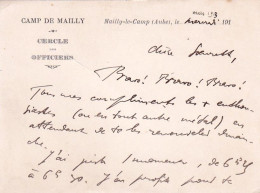 CAMP DE MAILLY
CERCLE
DES
OFFICIERS
Mailly-le-Camp (Aube), le mercredi 191
Chère
Bravo! Bravo! Bravo!
Tous mes compliments les + enthou-
siastes (ou en tout autre métal) en
attendant de te les renouveler
che. j'ai juste 1 moment, de 6h
à 6h 30. j'en profite pour te